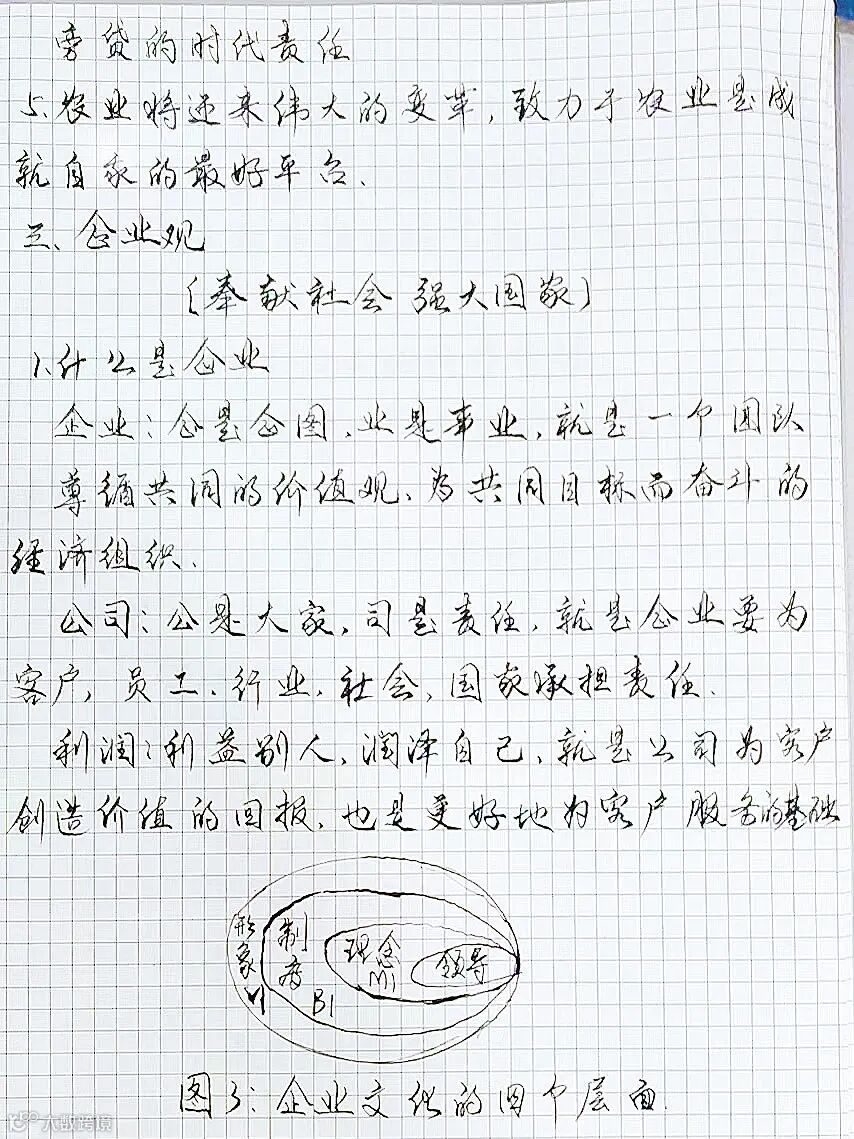 旁贷的时代责任
5、农业将迎来伟大的变革,致力于农业是成
就自我的最好平台.
三、企业观
(奉献社会 强大国家)
1、什么是企业
企业:企是企图,业是事业,就是一个团队
尊循共同的价值观、为共同目标而奋斗的
经济组织.
公司:公是大家,司是责任,就是企业要为
客户,员工,行业,社会,国家承担责任.
利润:利益别人,润泽自己,就是公司为客户
创造价值的回报,也是更好地为客户服务的基础
形象 VI
制度 BI
理念 MI
领导
图3:企业文化的四个层面.
大数跨境